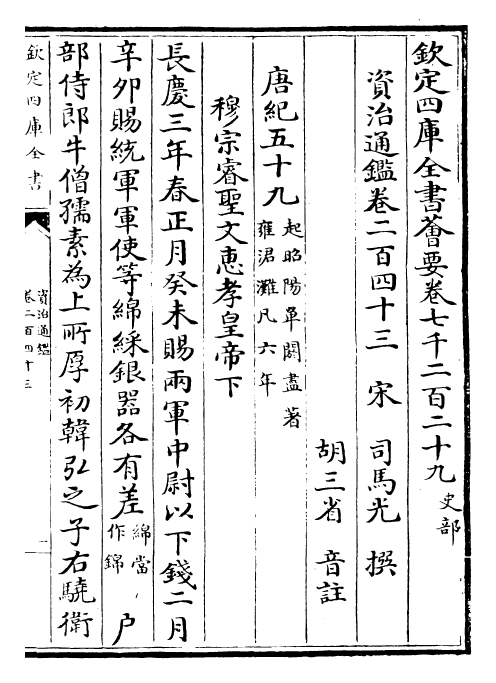 欽定四庫全書薈要卷七千二百二十九 史部
資治通鑑卷二百四十三 宋 司馬光 撰
胡三省 音註
唐紀五十九 起昭陽單閼盡著
雍涒灘凡六年
穆宗睿聖文惠孝皇帝下
長慶三年春正月癸未賜兩軍中尉以下錢二月
辛卯賜統軍軍使等綿綵銀器各有差 綿當
作錦 户
部侍郎牛僧孺素為上所厚初韓弘之子右驍衛
欽定四庫全書
資治通鑑
卷二百四十三
一